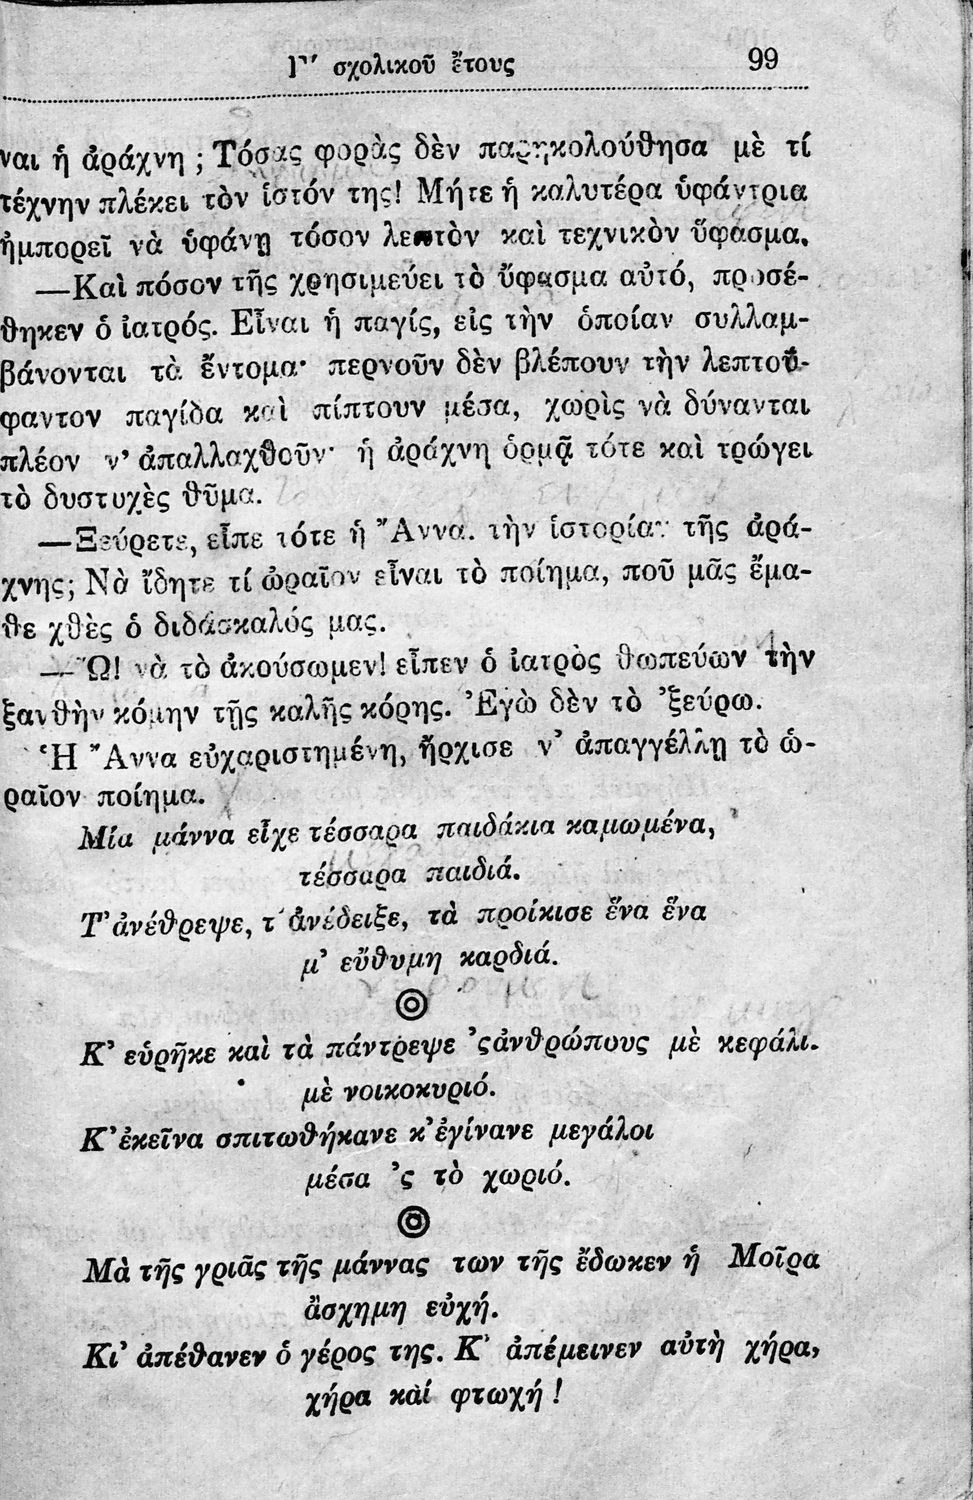 Γ' σχολικοῦ ἔτους 99
ναι ἡ ἀράχνη ; Τόσας φορὰς δὲν παρηκολούθησα μὲ τί
τέχνην πλέκει τὸν ἱστόν της! Μήτε ἡ καλυτέρα ὑφάντρια
ἠμπορεῖ νὰ ὑφάνῃ τόσον λεπτὸν καὶ τεχνικὸν ὕφασμα.
—Καὶ πόσον τῆς χρησιμεύει τὸ ὕφασμα αὐτό, προσέ-
θηκεν ὁ ἰατρός. Εἶναι ἡ παγίς, εἰς τὴν ὁποίαν συλλαμ-
βάνονται τὰ ἔντομα· περνοῦν δὲν βλέπουν τὴν λεπτοΰ-
φαντον παγίδα καὶ πίπτουν μέσα, χωρὶς νὰ δύνανται
πλέον ν' ἀπαλλαχθοῦν· ἡ ἀράχνη ὁρμᾷ τότε καὶ τρώγει
τὸ δυστυχὲς θῦμα.
—Ξεύρετε, εἶπε τότε ἡ Ἄννα. τὴν ἱστορίαν τῆς ἀρά-
χνης; Νὰ ἴδητε τί ὡραῖον εἶναι τὸ ποίημα, ποῦ μᾶς ἔμα-
θε χθὲς ὁ διδάσκαλός μας.
—Ὢ! νὰ τὸ ἀκούσωμεν! εἶπεν ὁ ἰατρὸς θωπεύων τὴν
ξανθὴν κόμην τῆς καλῆς κόρης. Ἐγὼ δὲν τὸ 'ξεύρω.
Ἡ Ἄννα εὐχαριστημένη, ἤρχισε ν' ἀπαγγέλλῃ τὸ ὡ-
ραῖον ποίημα.
Μία μάννα εἶχε τέσσαρα παιδάκια καμωμένα,
τέσσαρα παιδιά.
Τ' ἀνέθρεψε, τ' ἀνέδειξε, τὰ προίκισε ἕνα ἕνα
μ' εὔθυμη καρδιά.
Κ' εὑρῆκε καὶ τὰ πάντρεψε 'ς ἀνθρώπους μὲ κεφάλι.
μὲ νοικοκυριό.
Κ' ἐκεῖνα σπιτωθήκανε κ' ἐγίνανε μεγάλοι
μέσα 'ς τὸ χωριό.
Μὰ τῆς γριᾶς τῆς μάννας των τῆς ἔδωκεν ἡ Μοῖρα
ἄσχημη εὐχή.
Κι' ἀπέθανεν ὁ γέρος της. Κ' ἀπέμεινεν αὐτὴ χήρα,
χήρα καί φτωχή !